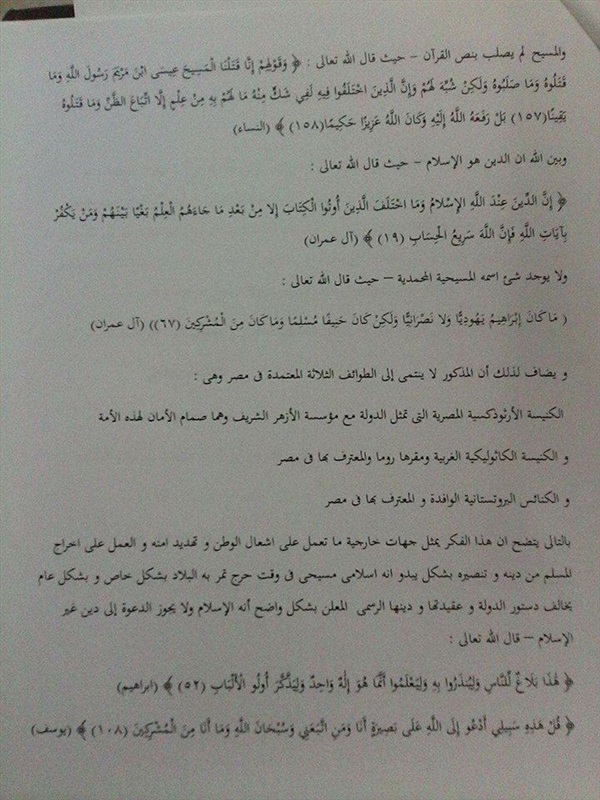 والمسيح لم يصلب بنص القرآن – حيث قال الله تعالى : ﴿ وَقَوْلِهِمْ إِنَّا قَتَلْنَا الْمَسِيحَ عِيسَى ابْنَ مَرْيَمَ رَسُولَ اللَّهِ وَمَا
قَتَلُوهُ وَمَا صَلَبُوهُ وَلَكِنْ شُبِّهَ لَهُمْ وَإِنَّ الَّذِينَ اخْتَلَفُوا فِيهِ لَفِي شَكٍّ مِنْهُ مَا لَهُمْ بِهِ مِنْ عِلْمٍ إِلَّا اتِّبَاعَ الظَّنِّ وَمَا قَتَلُوهُ
يَقِينًا(١٥٧) بَلْ رَفَعَهُ اللَّهُ إِلَيْهِ وَكَانَ اللَّهُ عَزِيزًا حَكِيمًا(١٥٨) ﴾ (النساء)
وبين الله ان الدين هو الإسلام – حيث قال الله تعالى :
﴿ إِنَّ الدِّينَ عِنْدَ اللَّهِ الإِسْلامُ وَمَا اخْتَلَفَ الَّذِينَ أُوتُوا الْكِتَابَ إِلا مِنْ بَعْدِ مَا جَاءَهُمُ الْعِلْمُ بَغْيًا بَيْنَهُمْ وَمَنْ يَكْفُرْ
بِآيَاتِ اللَّهِ فَإِنَّ اللَّهَ سَرِيعُ الْحِسَابِ (١٩) ﴾ (آل عمران)
ولا يوجد شئ اسمه المسيحية المحمدية – حيث قال الله تعالى :
( مَا كَانَ إِبْرَاهِيمُ يَهُودِيًّا وَلا نَصْرَانِيًّا وَلَكِنْ كَانَ حَنِيفًا مُسْلِمًا وَمَا كَانَ مِنَ الْمُشْرِكِينَ (٦٧)) (آل عمران)
و يضاف لذلك أن المذكور لا ينتمى إلى الطوائف الثلاثة المعتمدة فى مصر وهى :
الكنيسة الأرثوذكسية المصرية التى تمثل الدولة مع مؤسسة الأزهر الشريف وهما صمام الأمان لهذه الأمة
و الكنيسة الكاثوليكية الغربية ومقرها روما والمعترف بها فى مصر
و الكنائس البروتستانية الوافدة و المعترف بها فى مصر
بالتالى يتضح ان هذا الفكر يمثل جهات خارجية ما تعمل على اشعال الوطن و تهديد امنه و العمل على اخراج
المسلم من دينه و تنصيره بشكل يبدو انه اسلامى مسيحى فى وقت حرج تمر به البلاد بشكل خاص و بشكل عام
يخالف دستور الدولة و عقيدتها و دينها الرسمى المعلن بشكل واضح أنه الإسلام ولا يجوز الدعوة إلى دين غير
الإسلام – قال الله تعالى :
﴿ هَٰذَا بَلَاغٌ لِّلنَّاسِ وَلِيُنذَرُوا بِهِ وَلِيَعْلَمُوا أَنَّمَا هُوَ إِلَٰهٌ وَاحِدٌ وَلِيَذَّكَّرَ أُولُو الْأَلْبَابِ (٥٢) ﴾ (ابراهيم)
﴿ قُلْ هَذِهِ سَبِيلِي أَدْعُو إِلَى اللَّهِ عَلَى بَصِيرَةٍ أَنَا وَمَنِ اتَّبَعَنِي وَسُبْحَانَ اللَّهِ وَمَا أَنَا مِنَ الْمُشْرِكِينَ (١٠٨) ﴾ (يوسف)